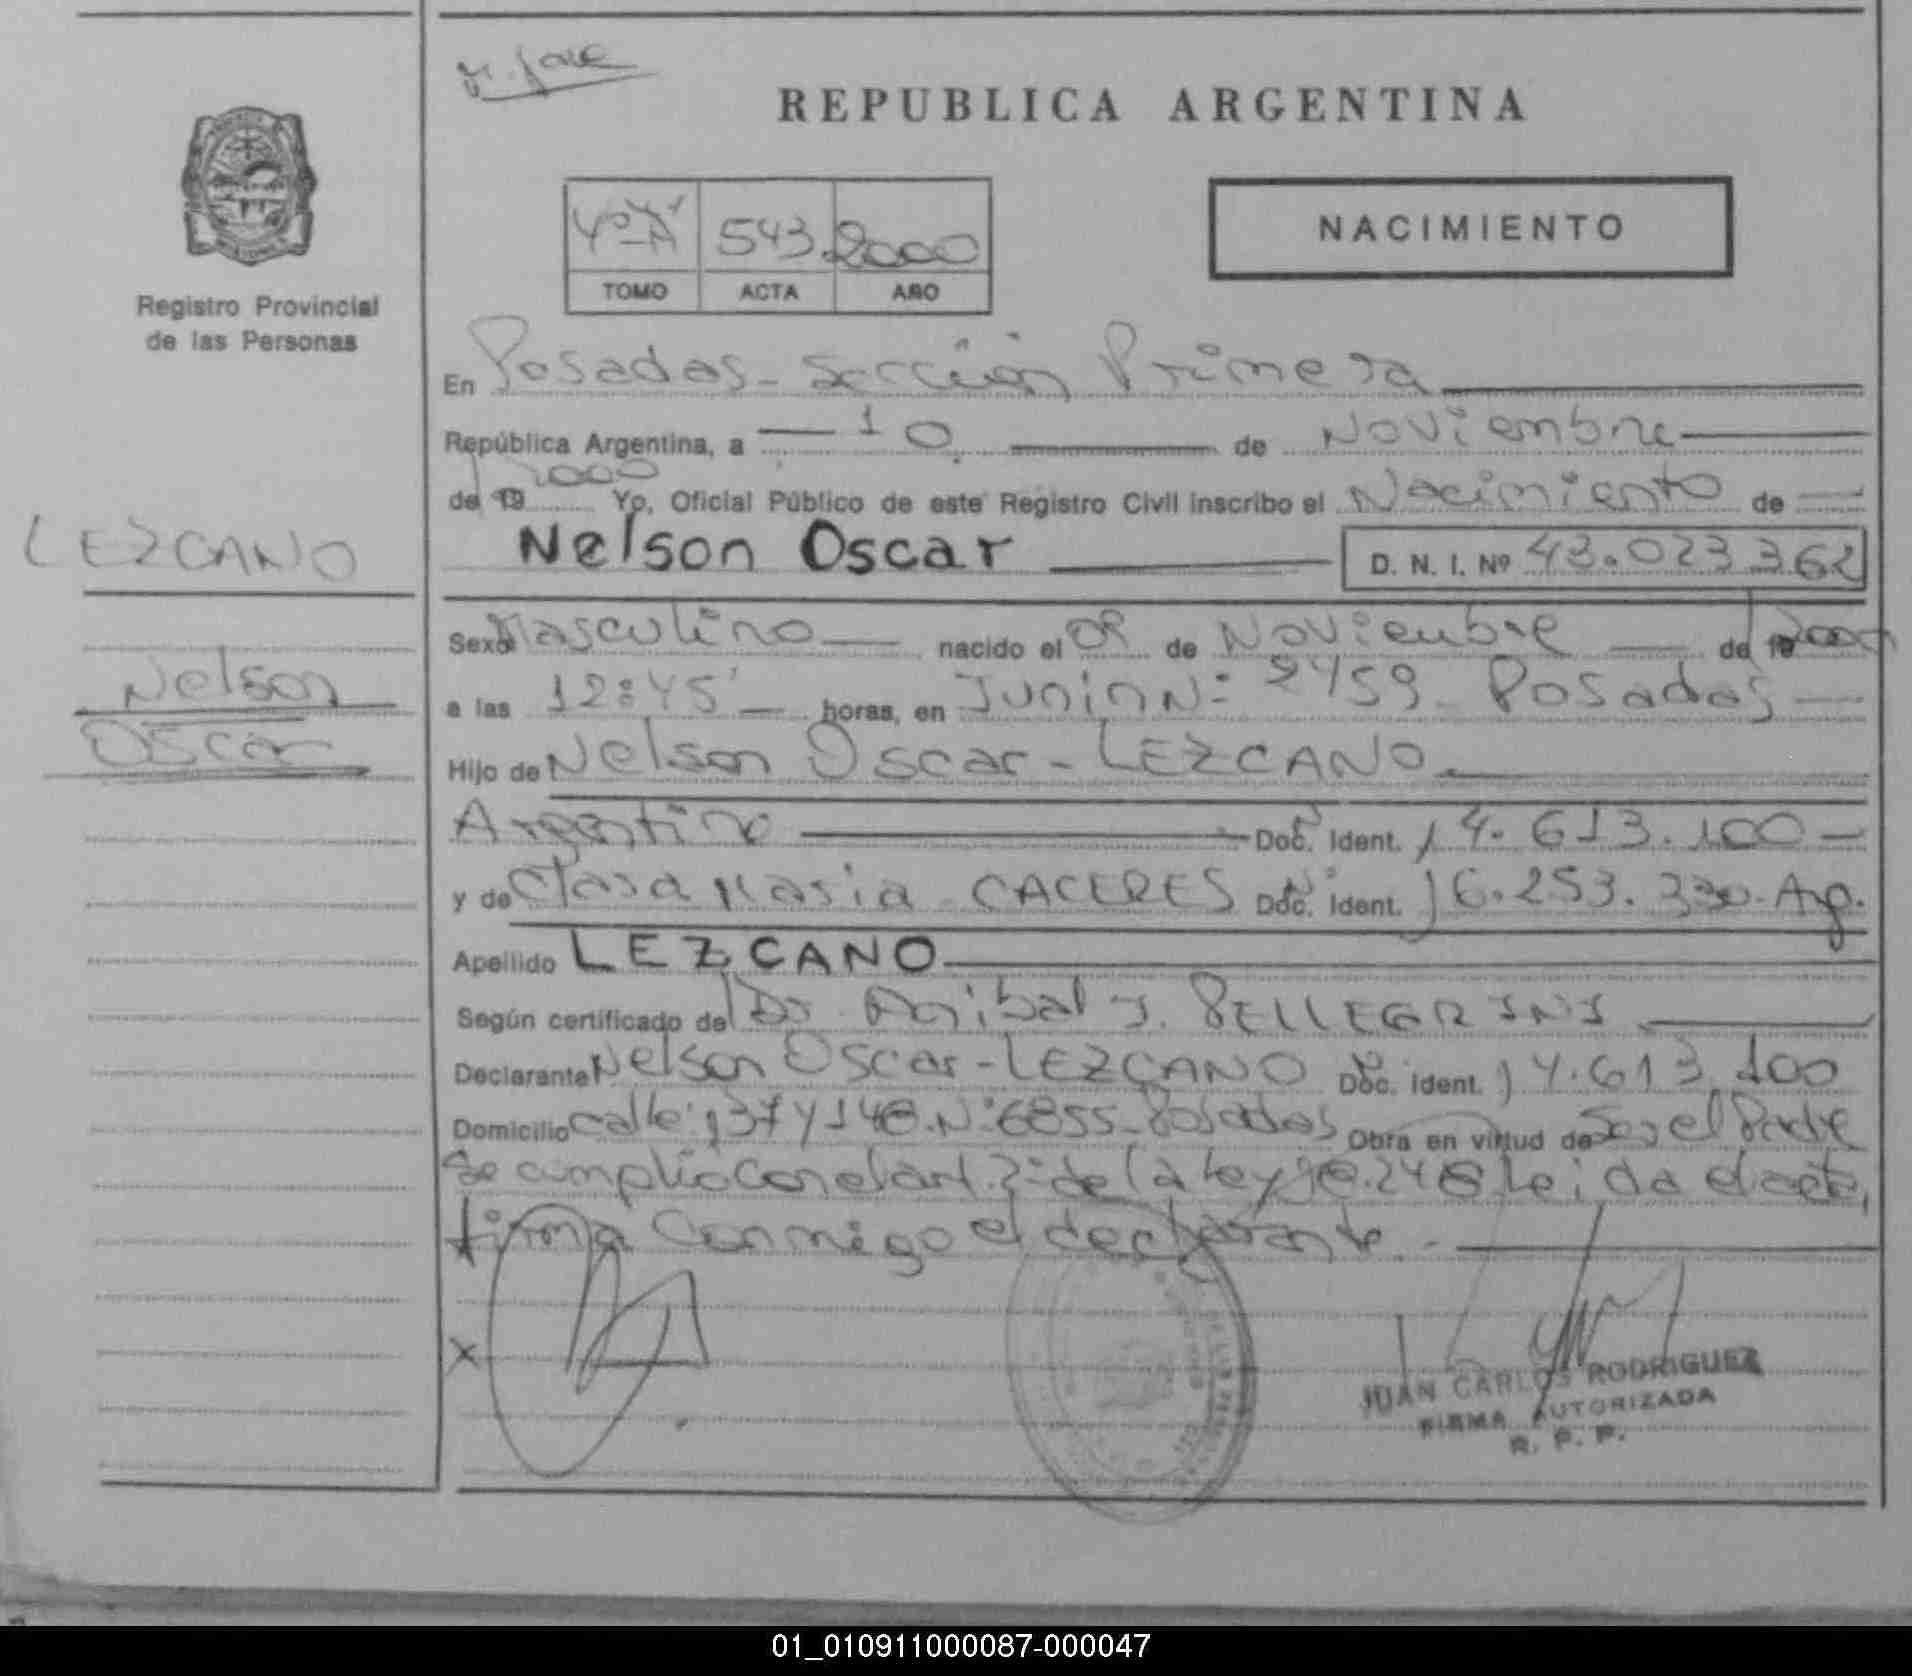 REPUBLICA ARGENTINA
Registro Provincial
de las Personas
4º "A" 543. 2000
TOMO ACTA AÑO
NACIMIENTO
LEZCANO
Nelson
Oscar
En Posadas - Sección Primera
República Argentina, a 10. de Noviembre
del 19 2000 Yo, Oficial Público de este Registro Civil inscribo el Nacimiento de
Nelson Oscar D. N. I. Nº 43.023.362
Sexo Masculino nacido el 09 de Noviembre del 19 2000
a las 12:45' horas, en Junin Nº 2459 - Posadas
Hijo de Nelson Oscar - LEZCANO
Argentino Doc. Ident. 14.613.100
y de Clara Maria CACERES Doc. Ident. 16.253.330. Arg.
Apellido LEZCANO
Según certificado del Dr. Anibal J. PELLEGRINI
Declarante Nelson Oscar - LEZCANO Doc. ident. 14.613.100
Domicilio calle: 137 y 148. Nº 6855 - Posadas Obra en virtud de Ser el Padre
Se cumplio con el art. 2: de la ley Leida el acta,
firma conmigo el declarante. -
X
JUAN CARLOS RODRIGUEZ
FIRMA AUTORIZADA
R. P. P.
01_010911000087-000047